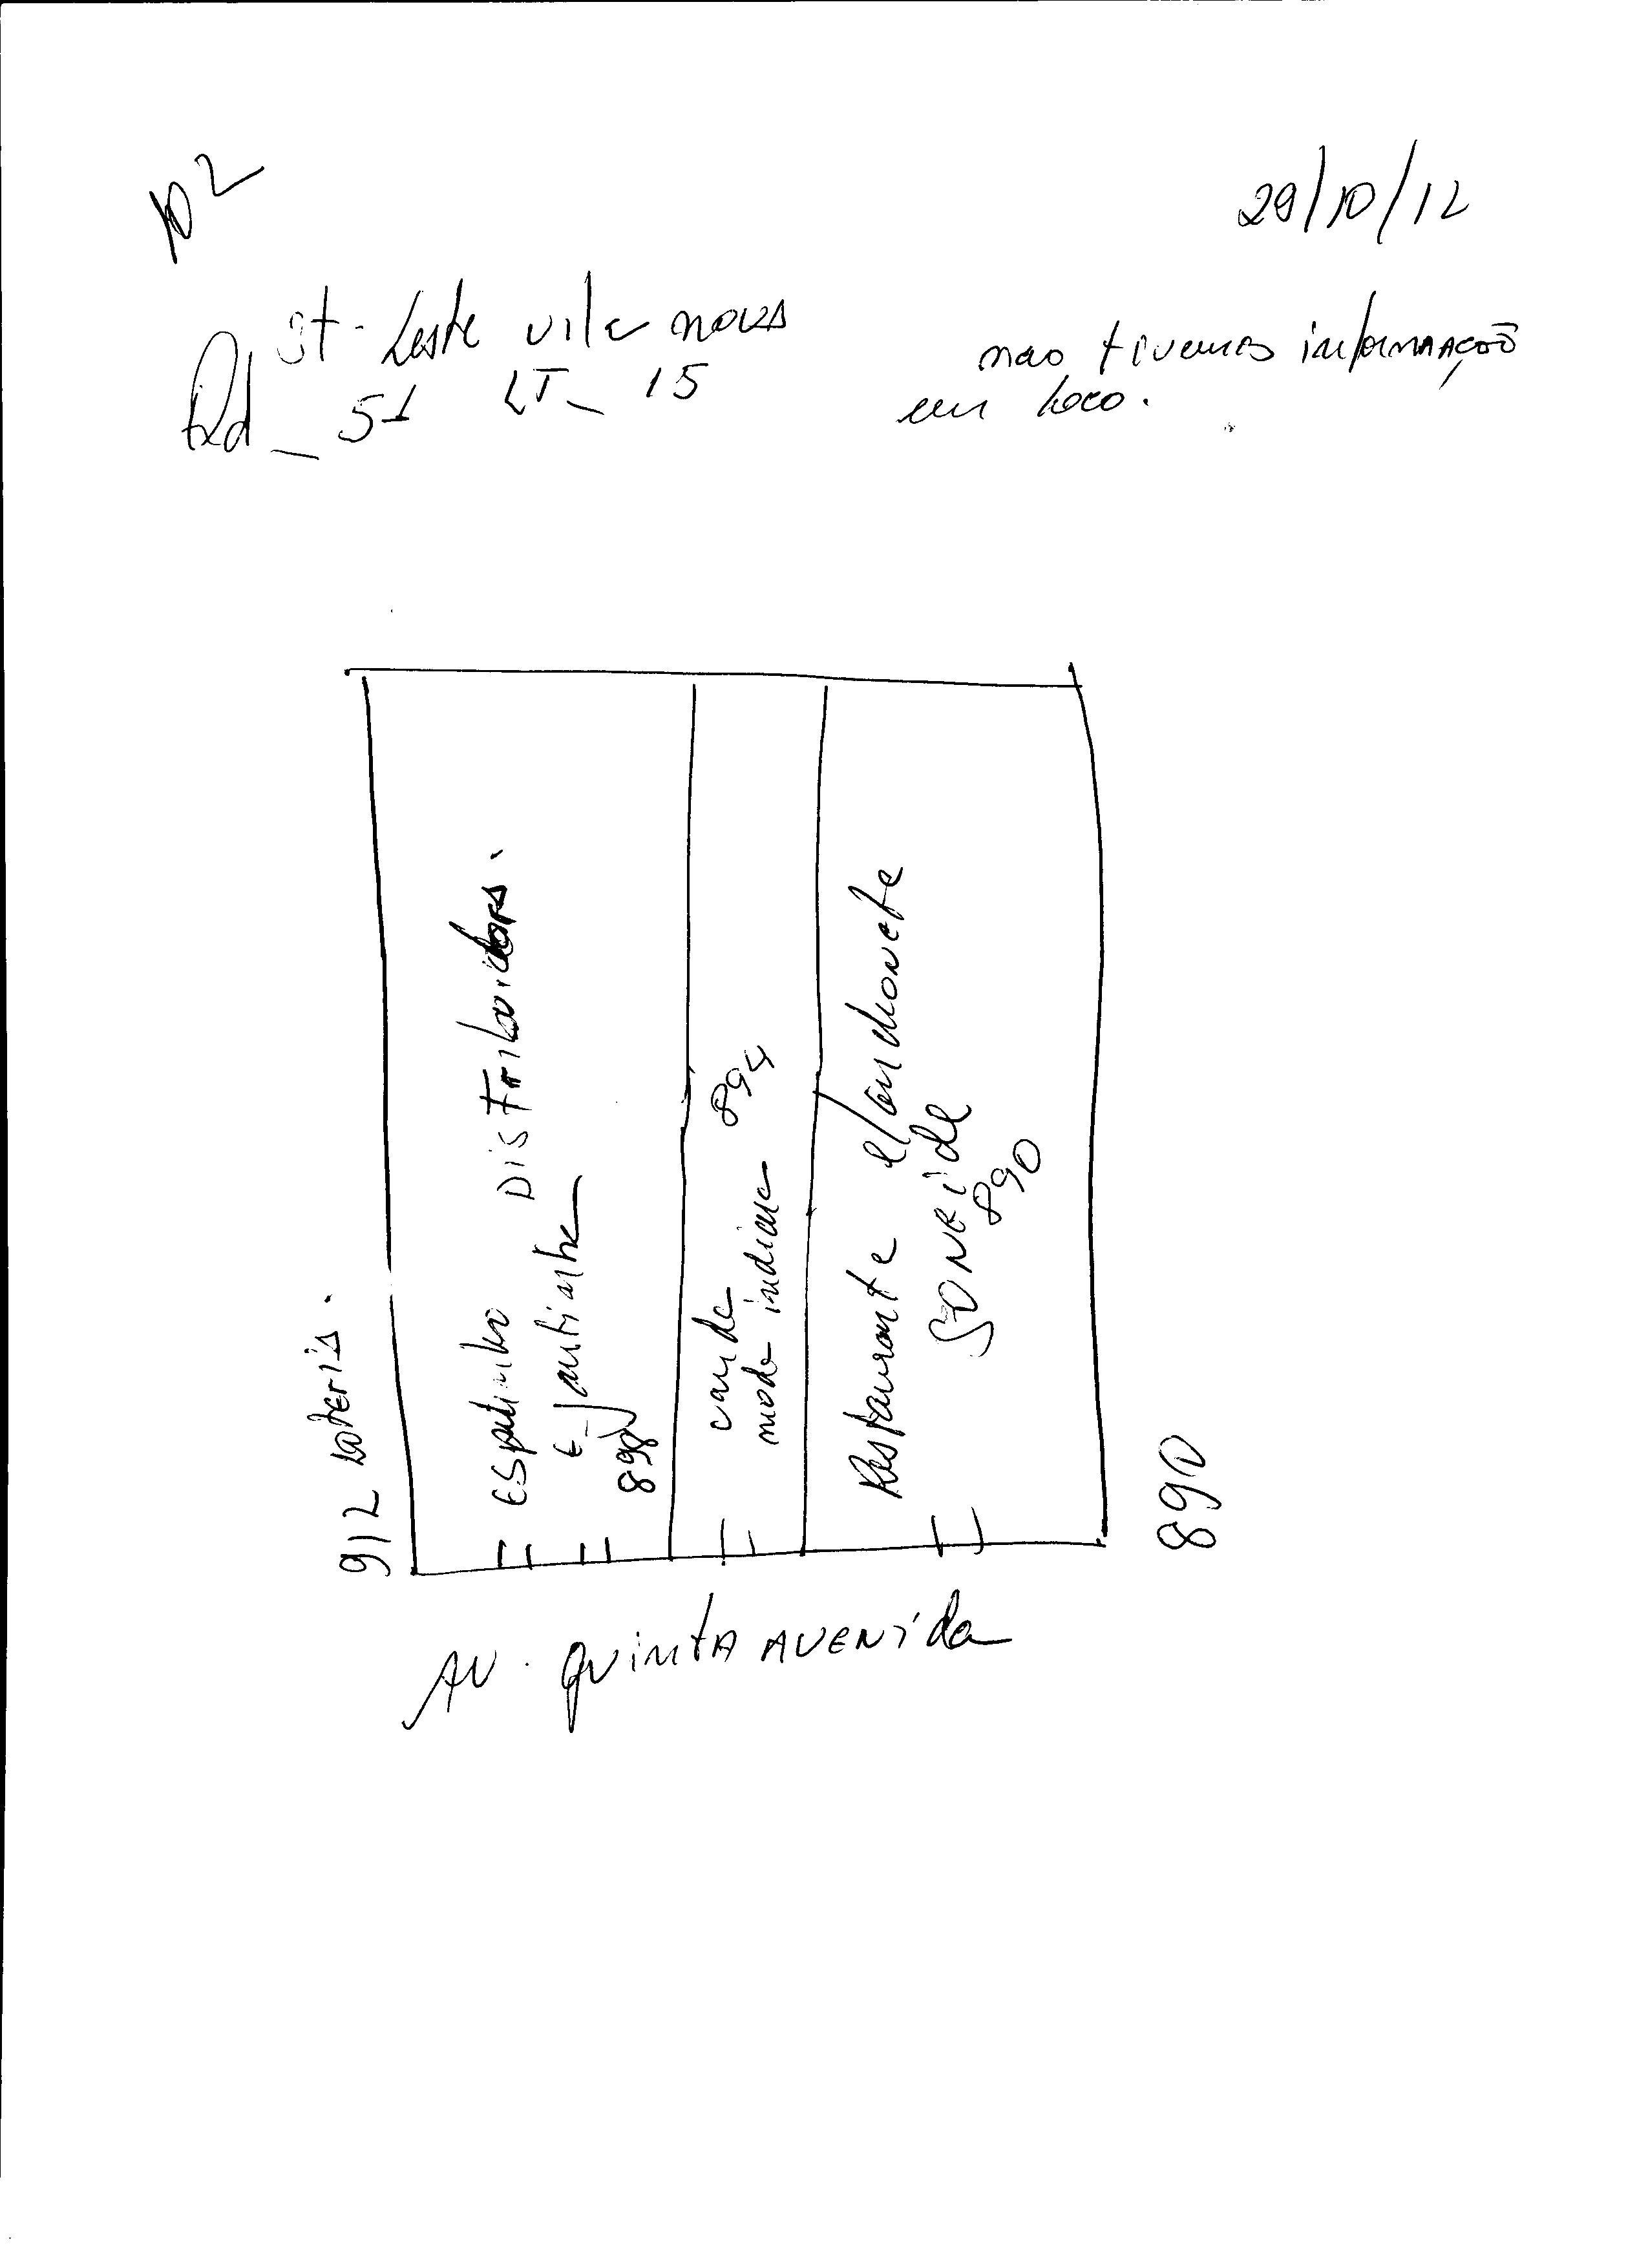 102
29/10/12
St. Leste vila nova
Qd_51 LT_15
nao tivemos informação
em loco.
912 Loteria.
Espetinho Distribuidora.
E Jantinha
898
moda indiana 894
Restaurante e lanchonete
890
890
AV. quinta AVENida